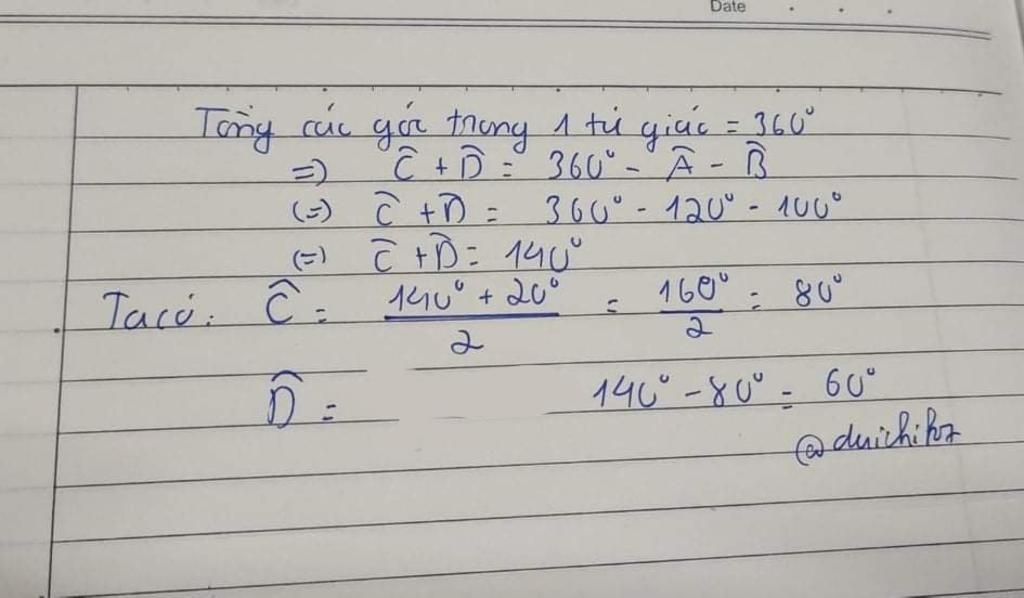 Date . . .
Tổng các góc trong 1 tứ giác = 360°
=> Ĉ + D̂ = 360° - Â - B̂
(=) Ĉ + D̂ = 360° - 120° - 100°
(=) Ĉ + D̂ = 140°
Ta có: Ĉ = (140° + 20°)/2 = 160°/2 = 80°
D̂ = 140° - 80° = 60°